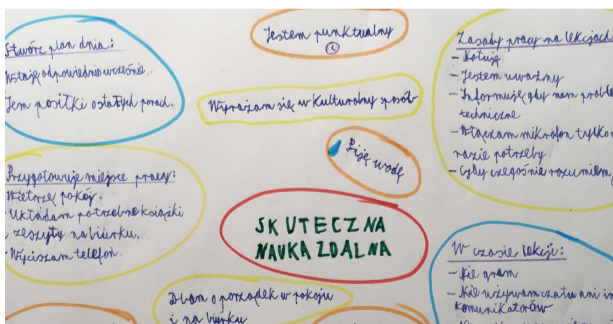 Stwórz plan dnia:
Wstaję odpowiednio wcześnie.
Jem posiłki o stałych porach.
Jestem punktualny
Wyrażam się w kulturalny sposób
Piję wodę
Zasady pracy na lekcjach
- Notuję
- Jestem uważny
- Informuję gdy mam proble
techniczne
- Włączam mikrofon tylko
razie potrzeby.
- Gdy czegoś nie rozumiem,
Przygotowuję miejsce pracy:
Wietrzę pokój.
- Układam potrzebne książki
i zeszyty na biurku.
- Wyciszam telefon.
SKUTECZNA
NAUKA ZDALNA
Dbam o porządek w pokoju
i na biurku
W czasie lekcji:
- Nie gram
- Nie używam czatu ani in
komunikatorów